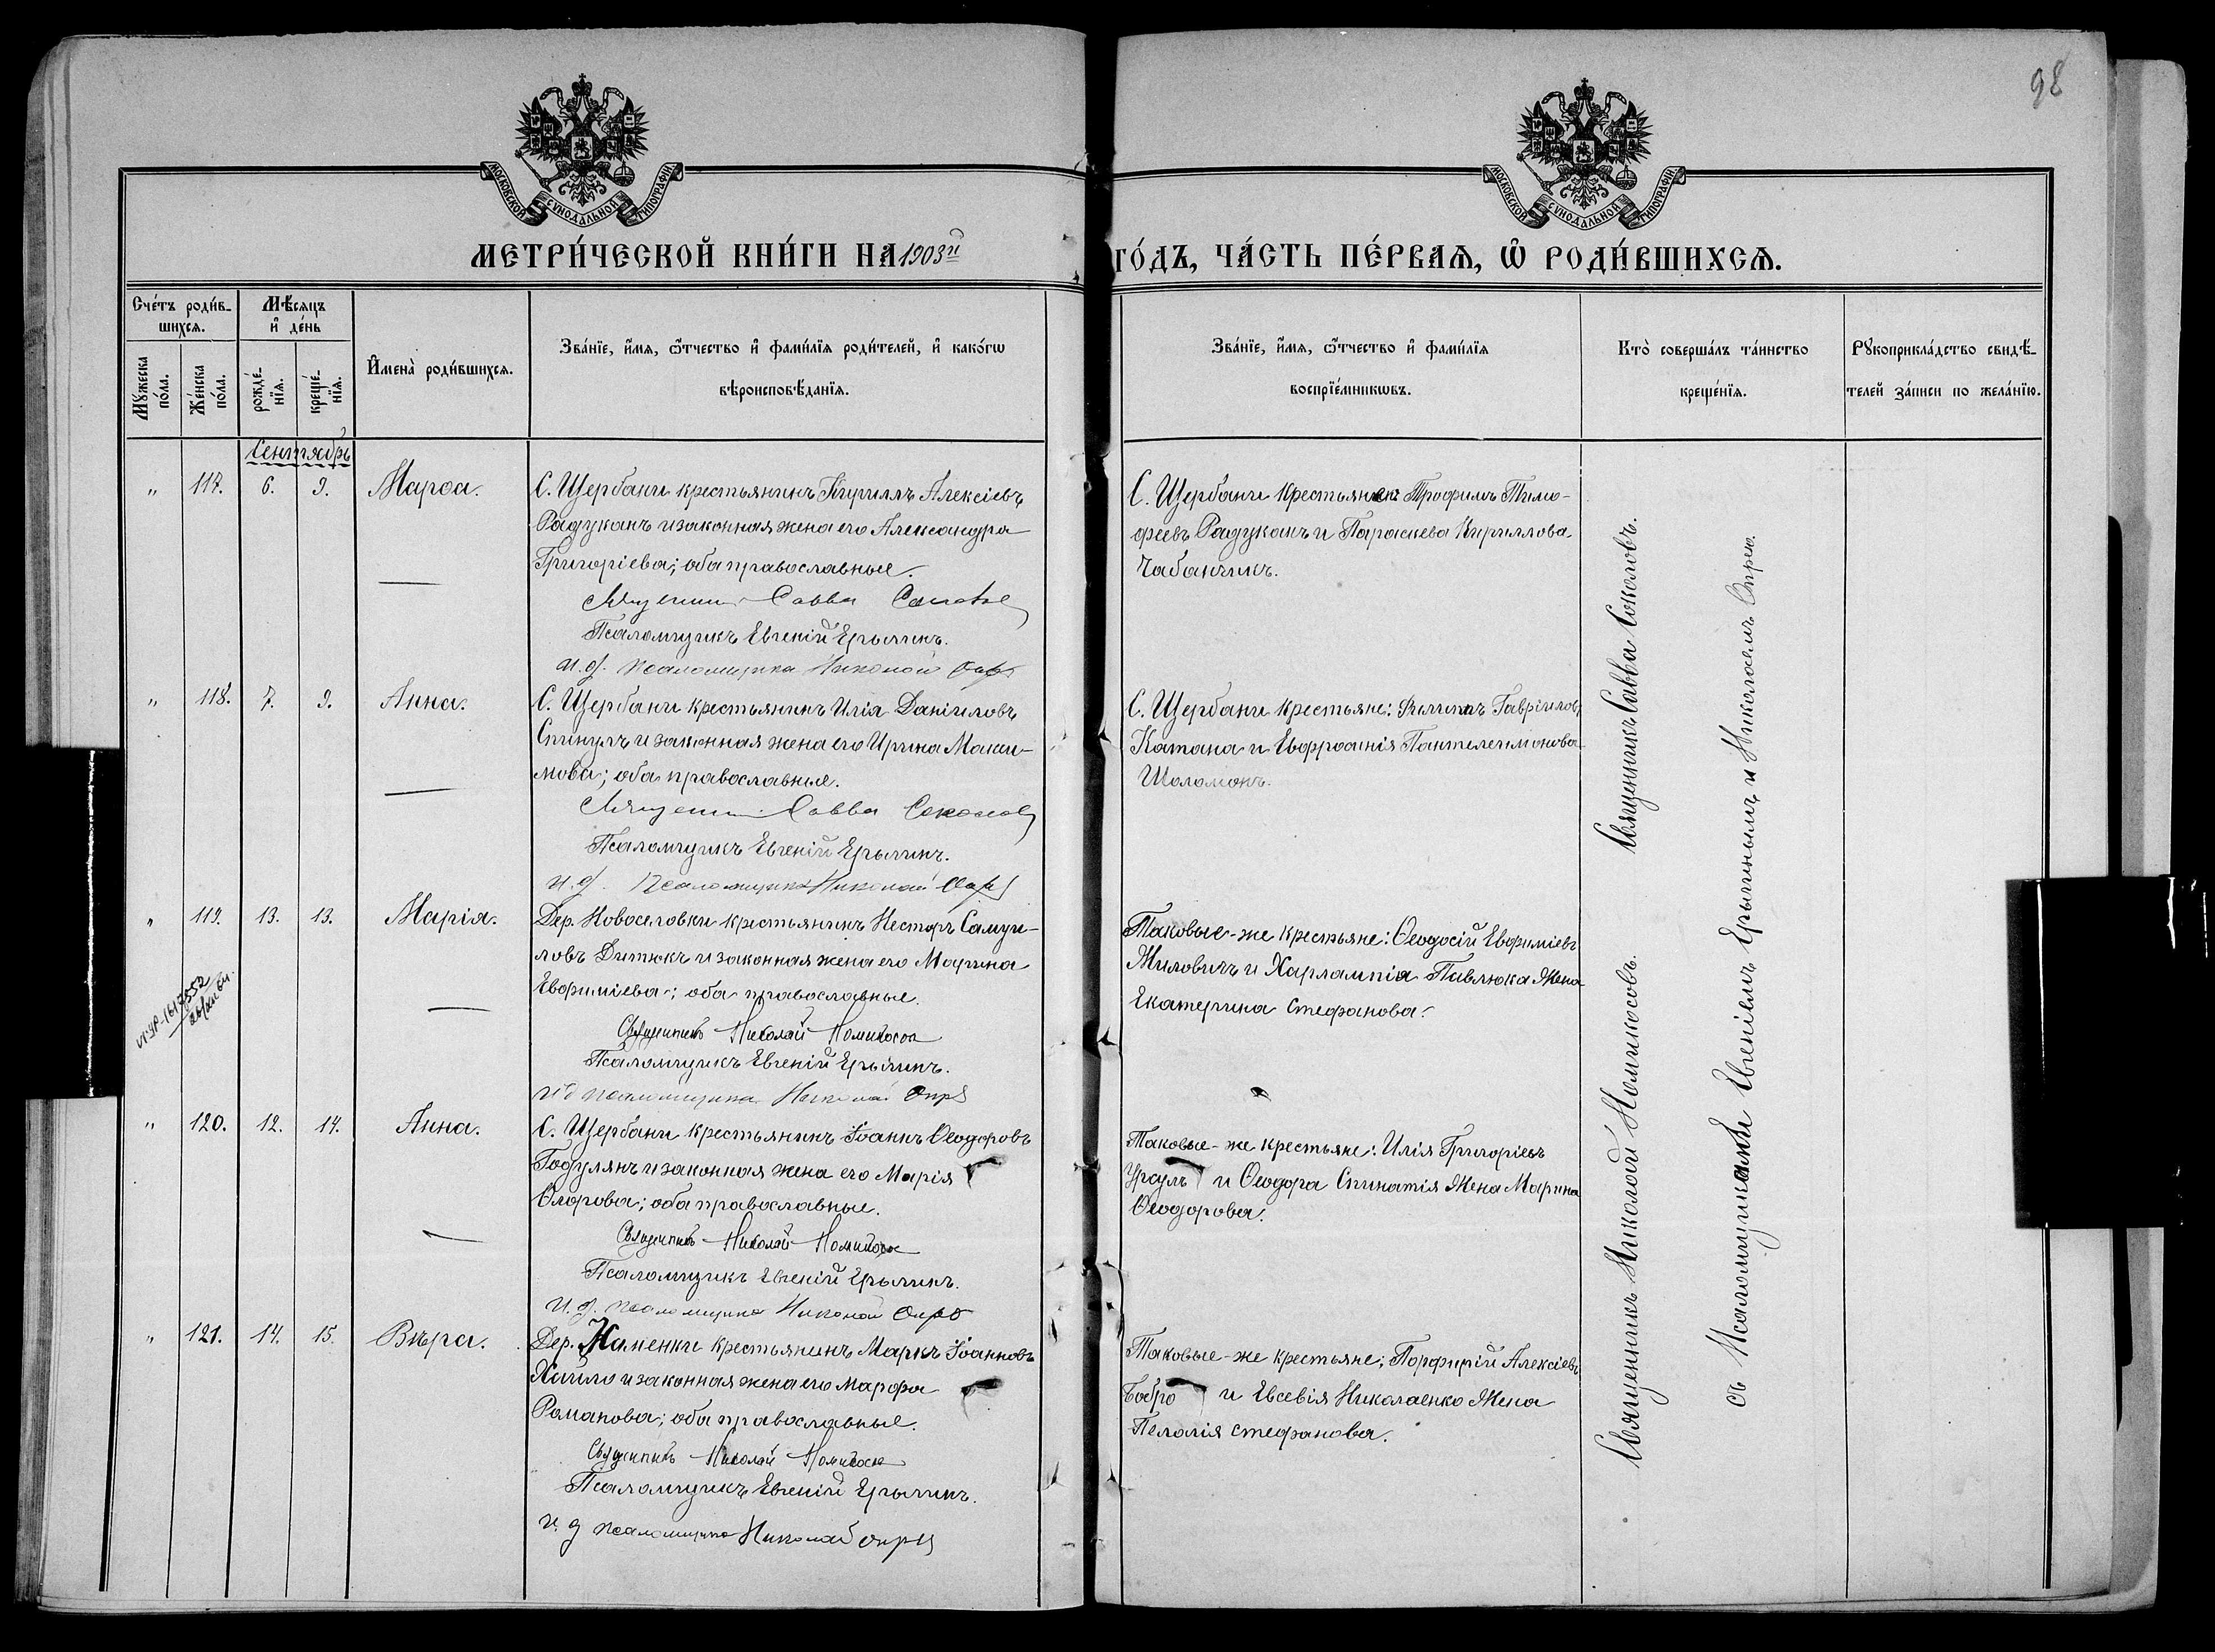 98
МОСКОВСКОЙ СѴНОДАЛЬНОЙ ТИПОГРАФІИ
МОСКОВСКОЙ СѴНОДАЛЬНОЙ ТИПОГРАФІИ
МЕТРИ́ЧЕСКОЙ КНИ́ГИ НА 1903й ГО́ДЪ, ЧА́СТЬ ПЕ́РВАѦ, Ѡ҆ РОДИ́ВШИХСѦ.
Сче́тъ роди́в-
шихсѧ.
Мѣ́сѧцъ
и҆ де́нь
Мꙋ́жеска
по́ла.
Же́нска
по́ла.
рожде́-
нїѧ.
креще́-
нїѧ.
И҆мена̀ роди́вшихсѧ.
Зва́нїе, и҆́мѧ, ѻ҆́тчество и҆ фами́лїѧ роди́телей, и҆ како́гѡ
вѣроисповѣ́данїѧ.
Зва́нїе, и҆́мѧ, ѻ҆́тчество и҆ фами́лїѧ
воспрїе́мникѡвъ.
Кто̀ соверша́лъ та́инство
креще́нїѧ.
Рꙋкоприкла́дство свидѣ́-
телей за́писи по жела́нїю.
Сентябрь
„ 117. 6. 9. Марѳа.
С. Щербани крестьянинъ Кириллъ Алексіевъ
Радуканъ и законная жена его Александра
Григоріева; оба православные.
Савва
Псаломщикъ Евгеній Ерылинъ.
и. д. псаломщика Николай
С. Щербани крестьяне: Трофимъ Тимо-
феевъ Радуканъ и Параскева Кириллова
Чабанчикъ.
„ 118. 7. 9. Анна.
С. Щербани крестьянинъ Илія Даніиловъ
Спинулъ и законная жена его Ирина Макси-
мова; оба православные.
Савва Соколовъ
Псаломщикъ Евгеній Ерылинъ.
и. д. псаломщика Николай
С. Щербани крестьяне: Филиппъ Гавріиловъ
Катана и Евфросинія Пантелеимонова
Шоломонъ.
„ 119. 13. 13. Марія.
Дер. Новоселовки крестьянинъ Несторъ Самуи-
ловъ Дитюкъ и законная жена его Марина
Евфиміева; оба православные.
Священникъ Николай Номикосовъ
Псаломщикъ Евгеній Ерылинъ.
и д псаломщика Николай Опря
Таковые-же крестьяне: Ѳеодосій Евфиміевъ
Миловичъ и Харлампія Павлюка жена
Екатерина Стефанова.
„ 120. 12. 14. Анна.
С. Щербани крестьянинъ Іоаннъ Ѳеодоровъ
Годулянъ и законная жена его Марія
Флорова; оба православные.
Священникъ Николай Номикосовъ
Псаломщикъ Евгеній Ерылинъ.
и. д. псаломщика Николай Опря
Таковые-же крестьяне: Илія Григоріевъ
Урсулъ и Ѳеодора Спинатія жена Марина
Ѳеодорова.
„ 121. 14. 15. Вѣра.
Дер. Каменки крестьянинъ Маркъ Іоанновъ
и законная жена его Марфа
Романова; оба православные.
Священникъ Николай Номикосовъ
Псаломщикъ Евгеній Ерылинъ.
и. д псаломщика Николай Опря
Таковые-же крестьяне: Порфирій Алексіевъ
Бобро и Евсевія Николаенко жена
Пелагія Стефанова.
Священникъ Савва Соколовъ.
Священникъ Николай Номикосовъ.
съ Псаломщиками Евгеніемъ Ерылинымъ и Николаемъ Опрею.